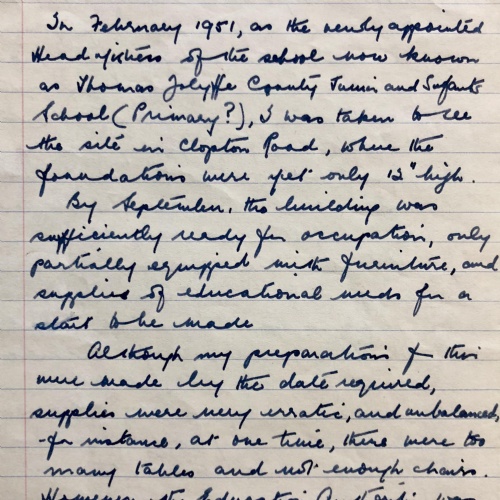 In February 1951, as the newly appointed
Headmistress of the school now known
as Thomas Jolyffe County Junior and Infants
School (Primary?), I was taken to see
the site in Clopton Road, where the
foundations were yet only 12" high.
By September, the building was
sufficiently ready for occupation, only
partially equipped with furniture, and
supplies of educational needs for a
start to be made
Although my preparations for this
were made by the date required,
supplies were very erratic, and unbalanced,
for instance, at one time, there were too
many tables and not enough chairs.
However, the Education